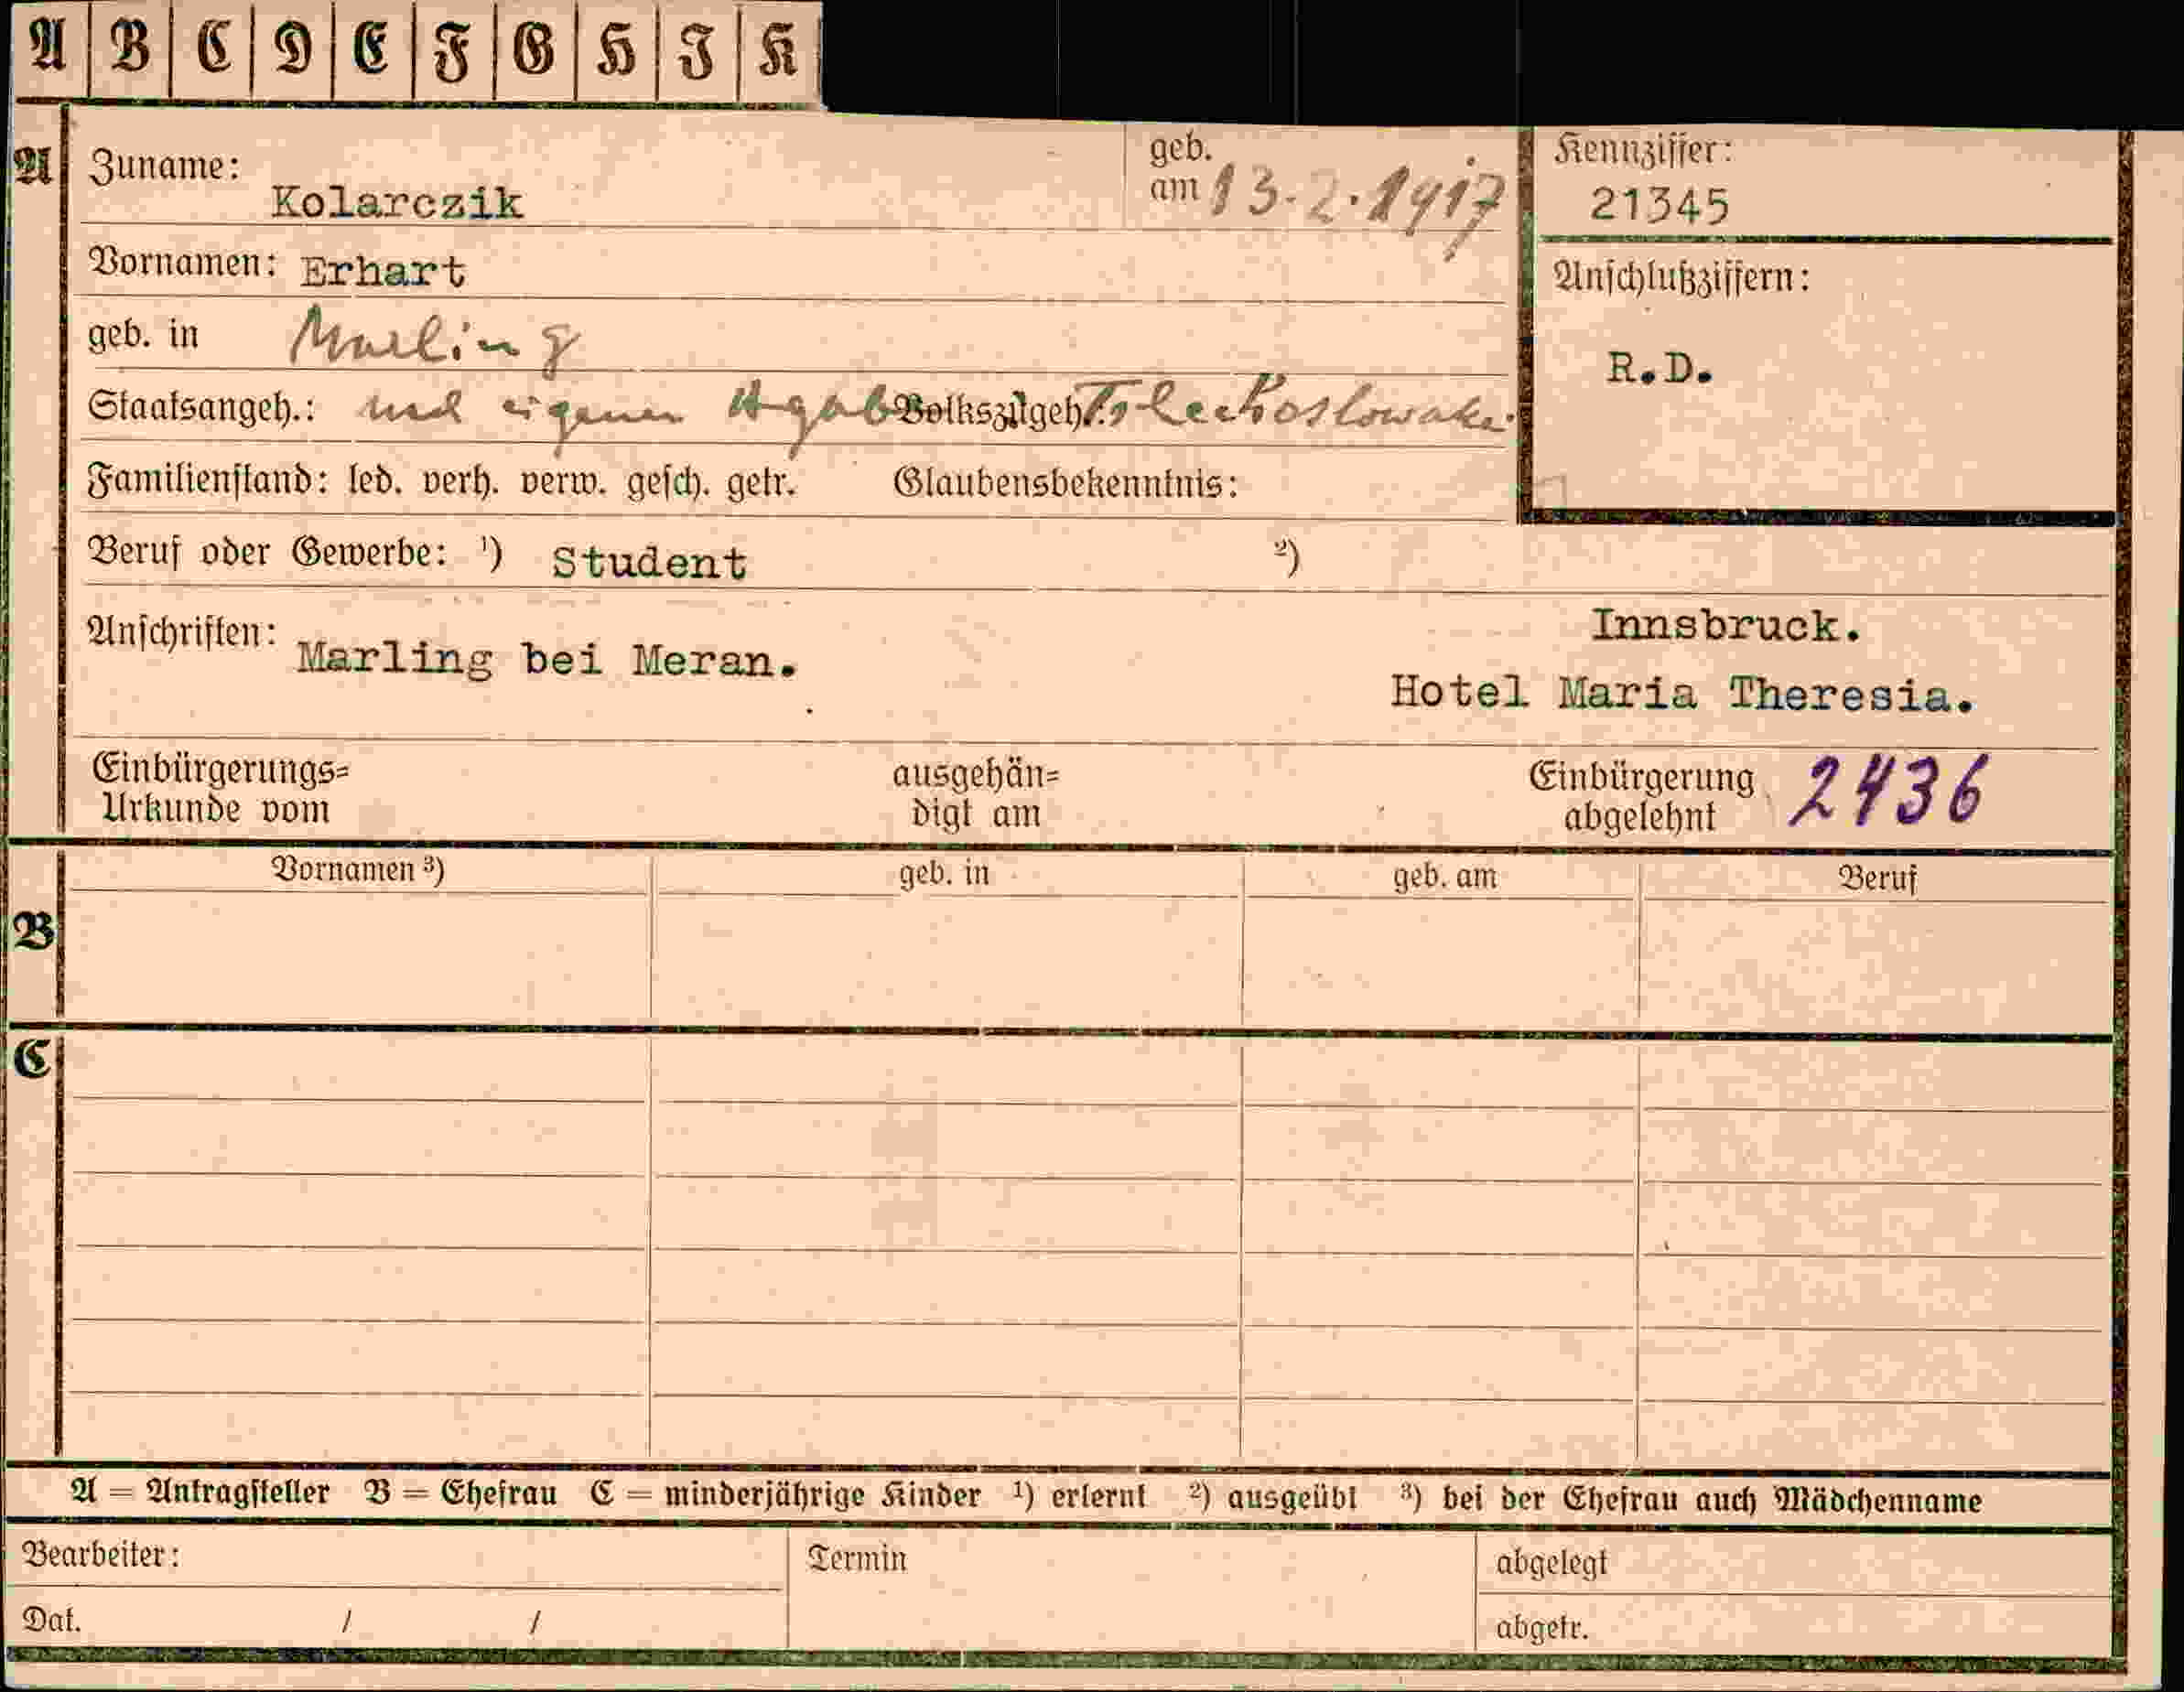 A B C D E F G H I K
A Zuname: Kolarczik geb. am 13.2.1917
Kennziffer: 21345
Vornamen: Erhart
Anschlußziffern:
R.D.
geb. in Marling
Staatsangeh.: nach eigener Agab Volkszugeh.: Tscheckoslowakei
Familienstand: led. verh. verw. gesch. getr. Glaubensbekenntnis:
Beruf oder Gewerbe: ¹) Student ²)
Anschriften: Marling bei Meran. Innsbruck.
Hotel Maria Theresia.
Einbürgerungs= ausgehän= Einbürgerung 2436
Urkunde vom digt am abgelehnt
Vornamen ³) geb. in geb. am Beruf
B
C
A = Antragsteller B = Ehefrau C = minderjährige Kinder ¹) erlernt ²) ausgeübt ³) bei der Ehefrau auch Mädchenname
Bearbeiter: Termin abgelegt
Dat. / / abgetr.